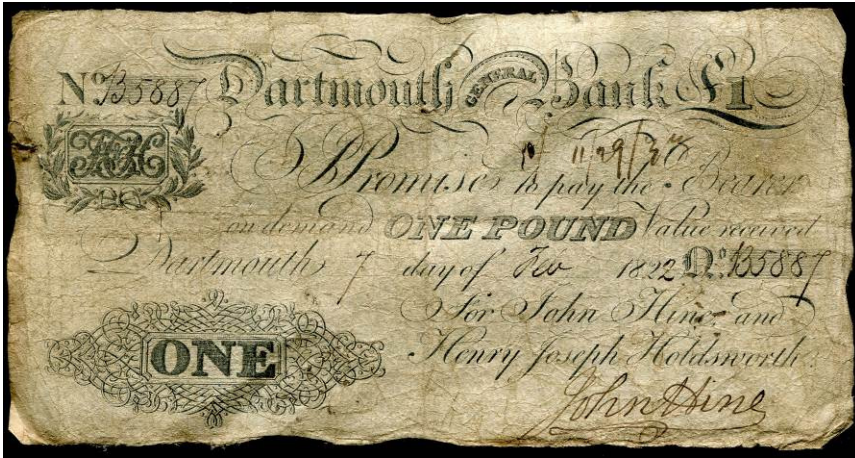 No. B5887 Dartmouth GENERAL Bank £1
I Promise to pay the Bearer
on demand ONE POUND Value received
Dartmouth 7 day of Feb 1822 No. B5887
For John Hine and
ONE Henry Joseph Holdsworth.
John Hine